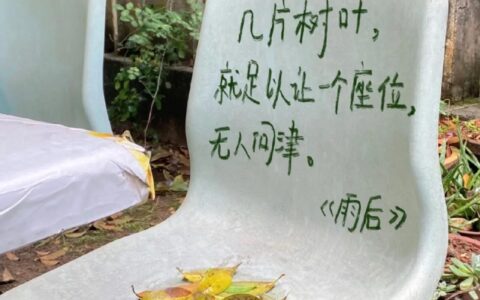 几片树叶,
就足以让一个座位,
无人问津。
《雨后》